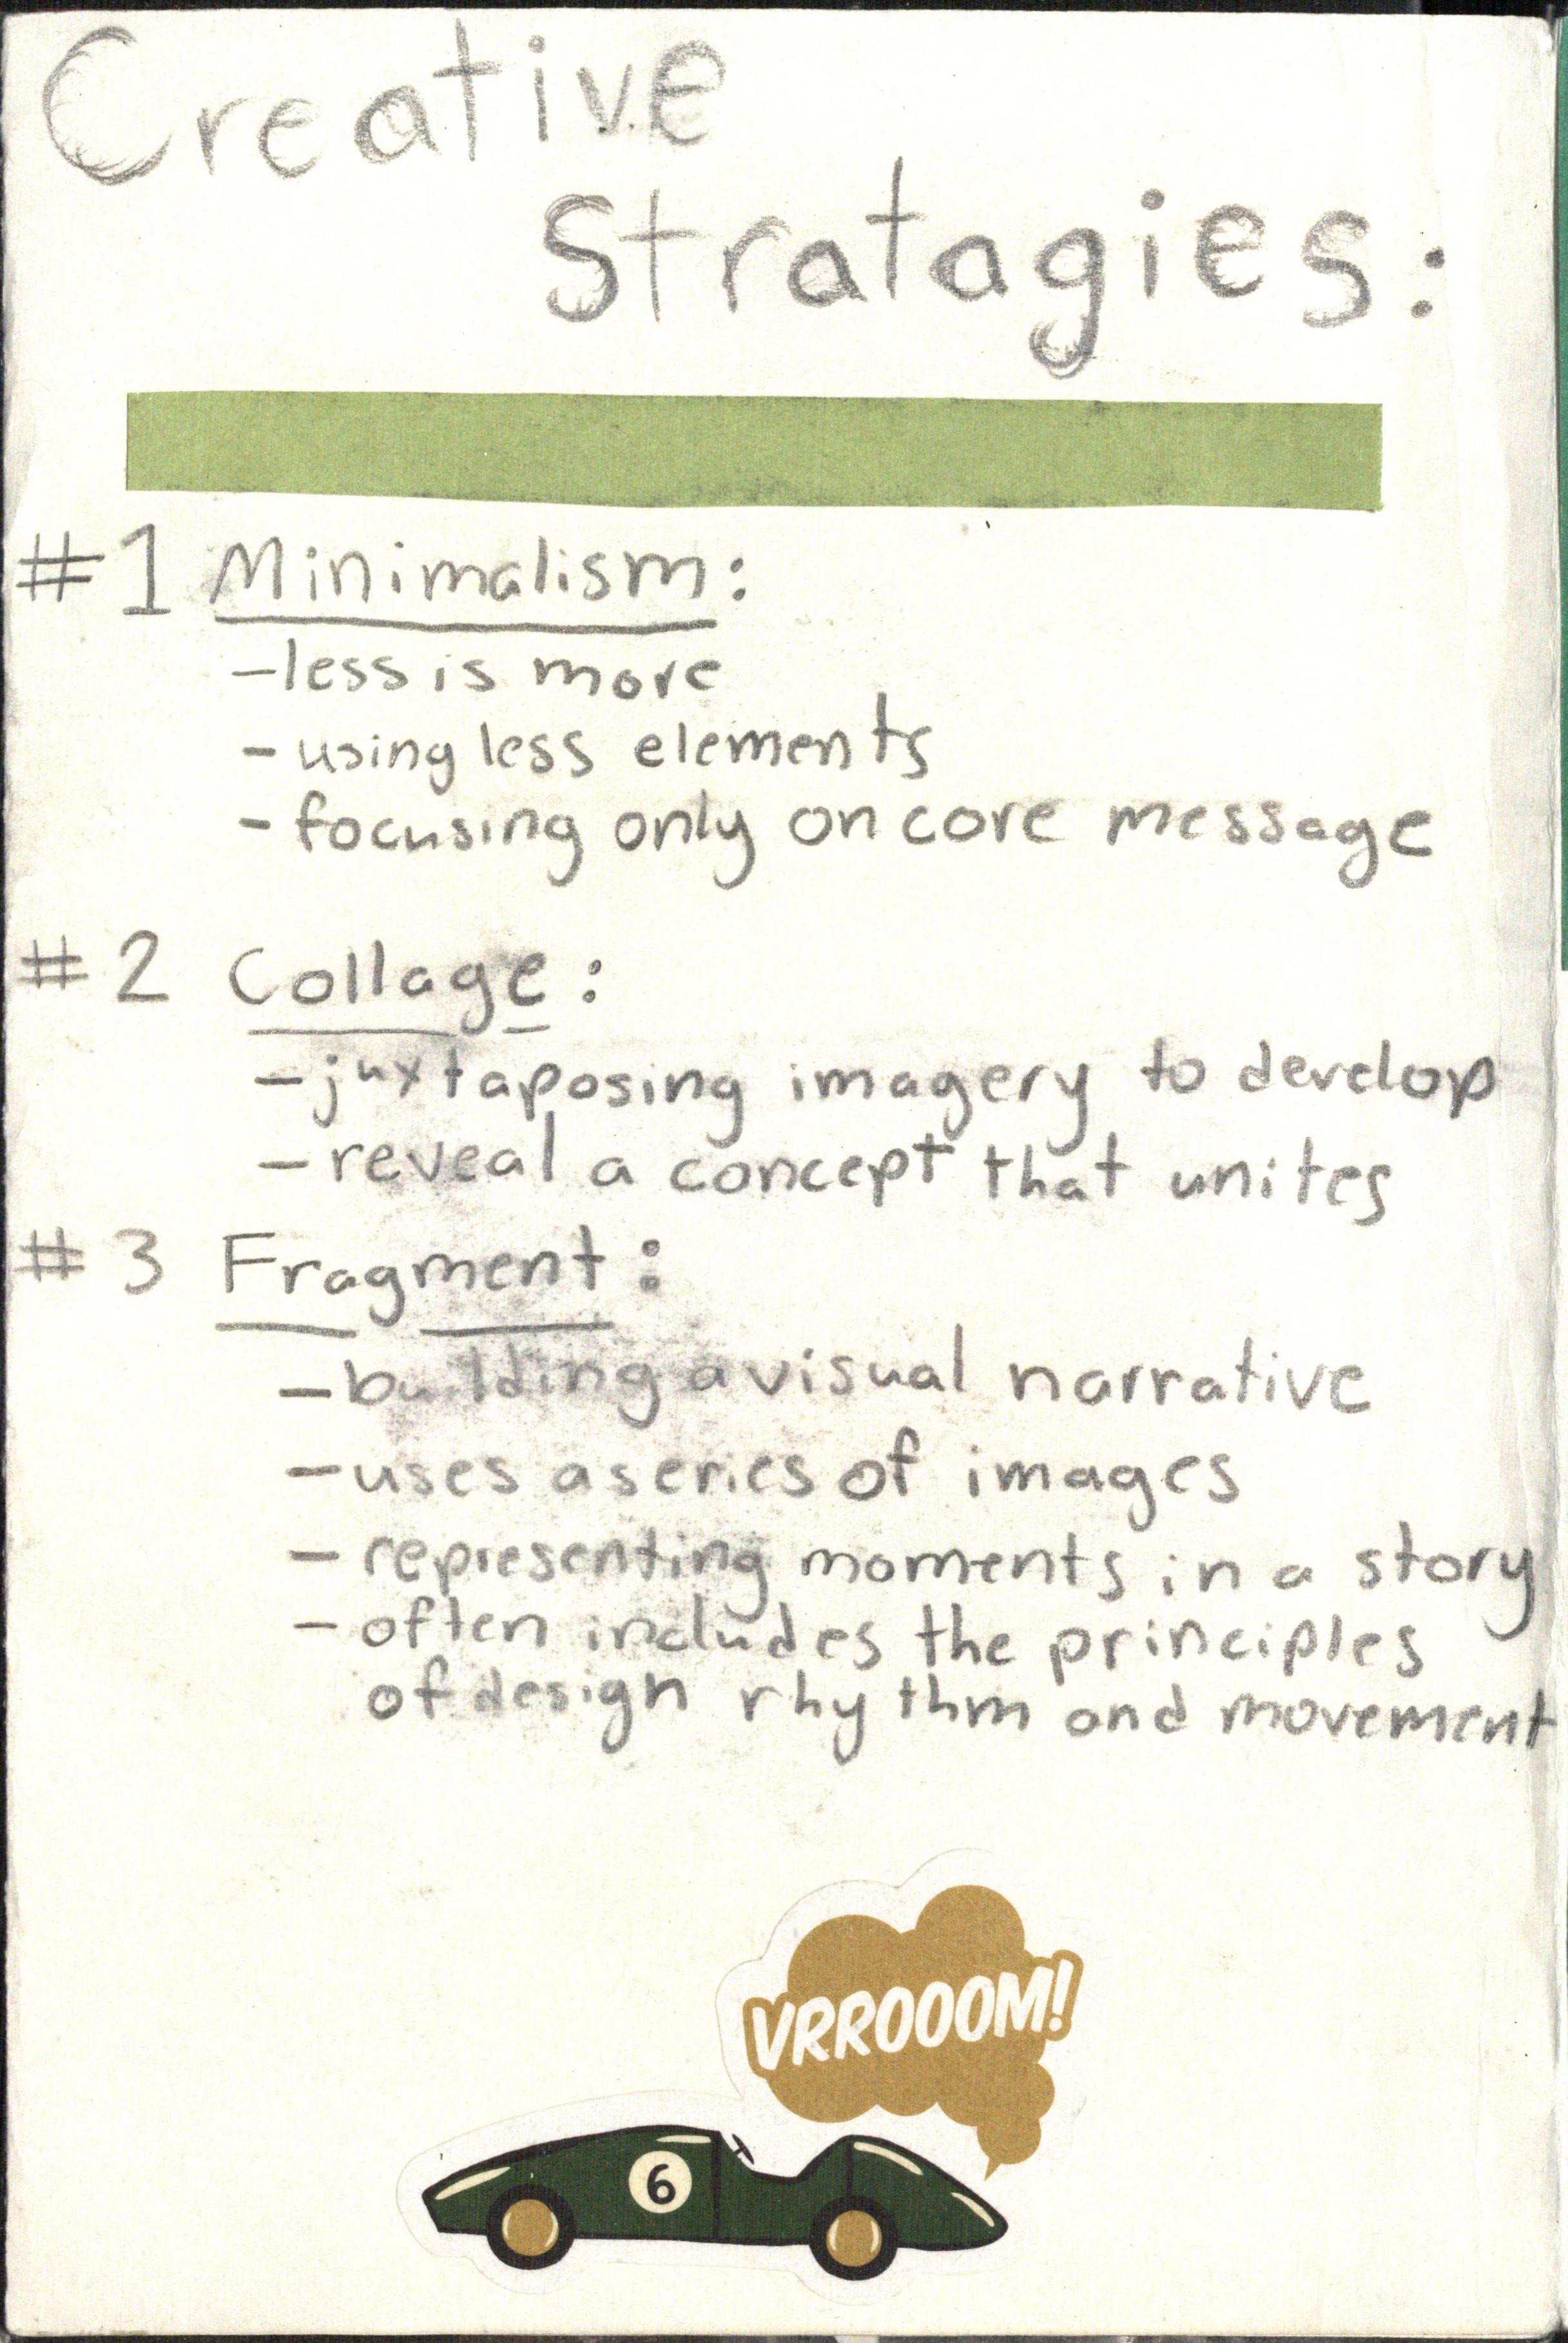 Creative
Stratagies:
#1 Minimalism:
-less is more
- using less elements
- focusing only on core message
#2 Collage:
- juxtaposing imagery to develop
- reveal a concept that unites
#3 Fragment:
- building a visual narrative
- uses a series of images
- representing moments in a story
- often includes the principles
of design rhythm and movement
VRROOOM!
6